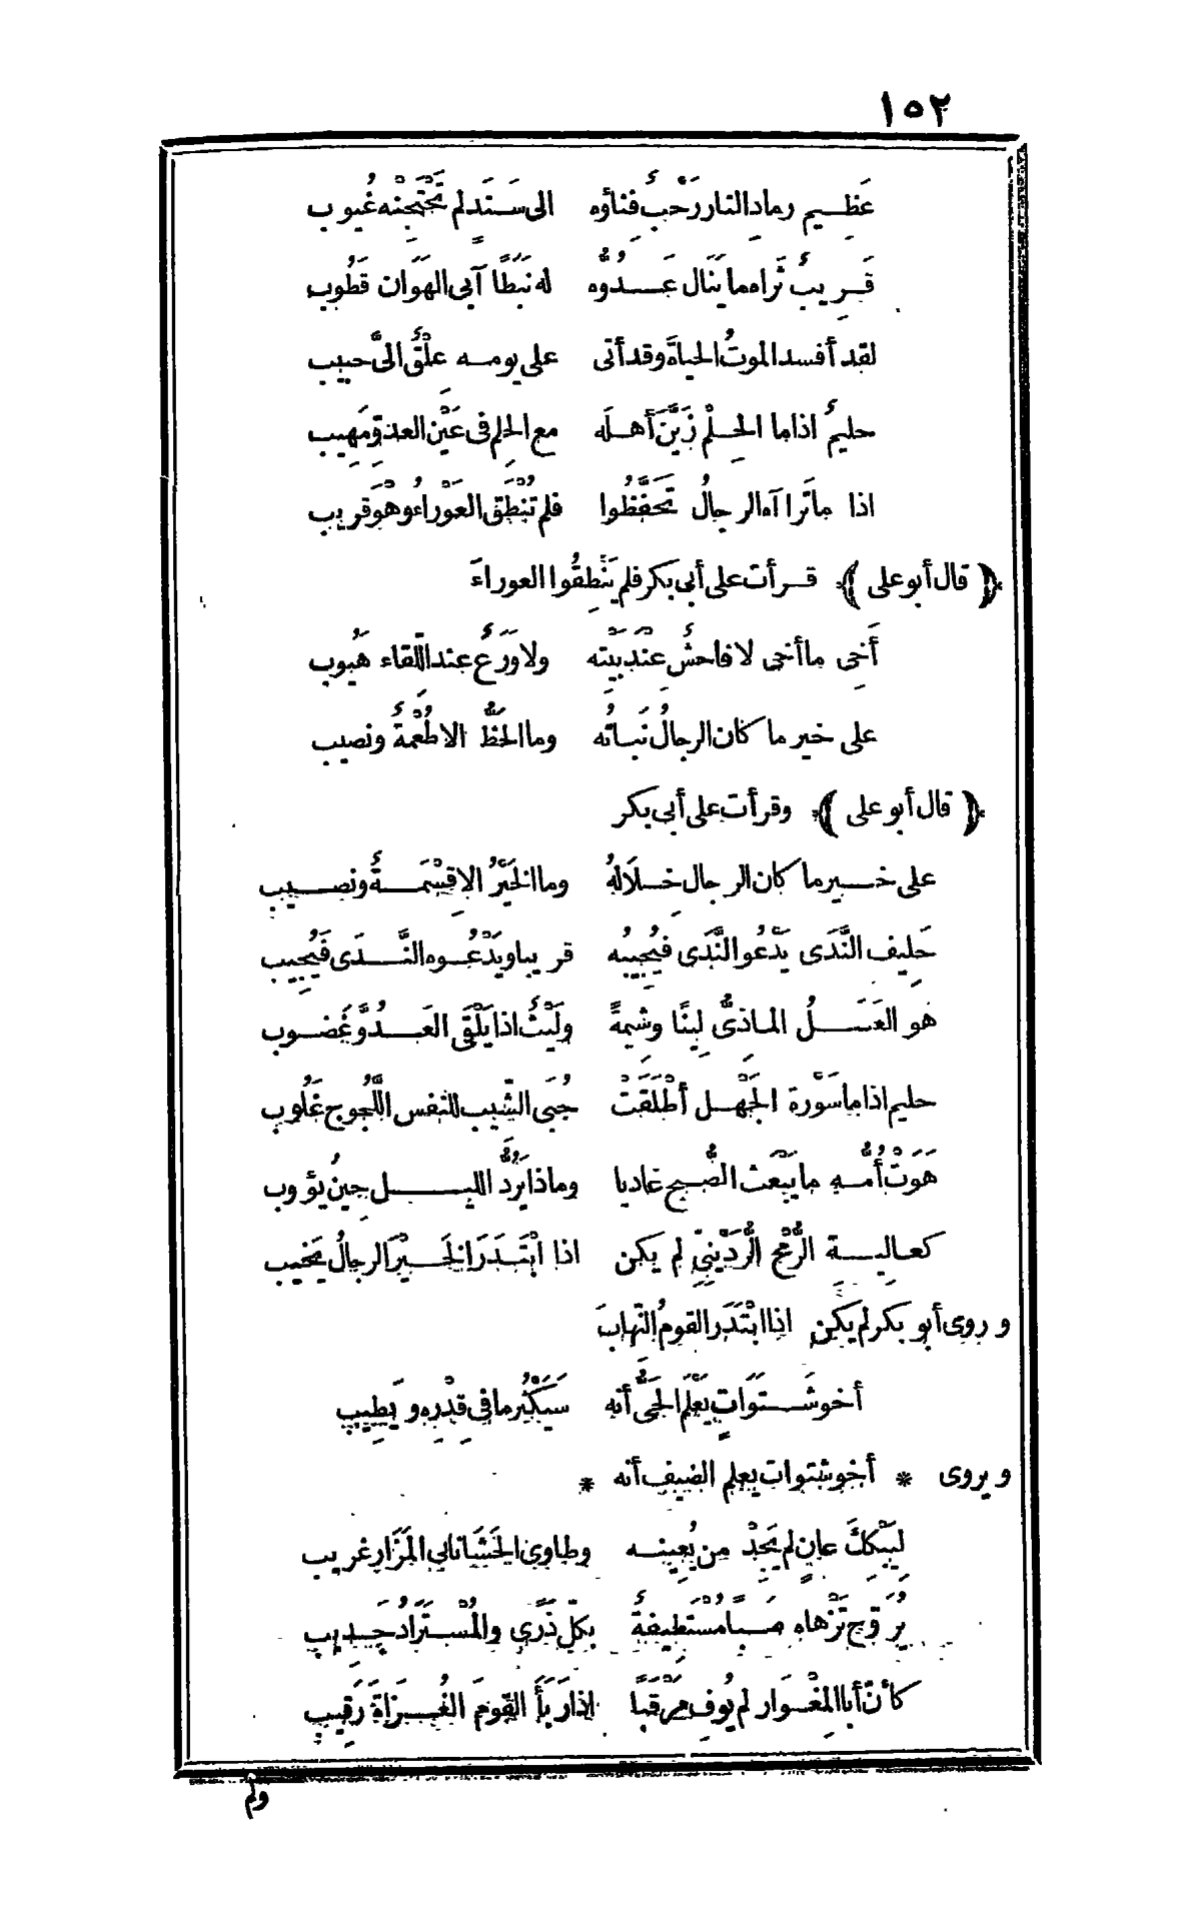 ١٥٢
عَظِــيمِ رمادِ النار رَحْبٌ فِناؤه الى سَــنَدٍ لم تَحْتَجِنْه غُيوب
قَــرِيبٌ ثَراه ما يَنَال عَــدُوُّه له نَبَطًا آبى الهَوَان قَطُوب
لقد أفسد الموتُ الحياةَ وقد أتى على يومــه عِلْقٌ الىَّ حبيب
حليمٌ اذا ما الحِــلْم زَيَّنَ أهــلَه مع الحِلم فى عَيْنِ العدوِّ مَهِيب
اذا ما تَراآه الرجالُ تَحَفَّظُوا فلم تُنْطَقِ العَوْراءُ وهْوَ قريب
﴿ قال أبو على ﴾ قــرأت على أبى بكر فلم يَنْطِقُوا العوراءَ
أَخِى ما أخى لا فاحشٌ عِنْدَ بَيْتِه ولا وَرَعٌ عند اللِّقاء هَيُوب
على خير ما كان الرجالُ نَباتُه وما الحَظُّ الا طُعْمَةٌ ونصيب
﴿ قال أبو على ﴾ وقرأت على أبى بكر
على خــير ما كان الرجال خِــلَالُهُ وما الخَيْرُ الا قِسْمَــةٌ ونصــيب
حَلِيف النَّدَى يَدْعُو النَّدَى فيُجِيبُه قريبا ويَدْعُــوه النَّــدَى فَيُجِيب
هو العَسَــلُ الماذىُّ لِينًا وشِيمةً ولَيْثٌ اذا يَلْقَى العَــدُوَّ غَضــوب
حليم اذا ما سَوْرة الجَهْــل أطْلَقَتْ حُبَى الشِّيب للنفس اللَّجُوج غَلُوب
هَوَتْ أُمُّــه ما يَبْعَث الصُّبح غاديا وماذا يَرُدُّ الليــــل حِينَ يؤوب
كعاليــة الرُّمْحِ الرُّدَيْنِىِّ لم يكن اذا ابْتَــدَرَ الخَــيْرَ الرجالُ يَخيب
وروى أبو بكر لم يَكن اذا ابْتَدَر القومُ النِّهابَ
أخو شَــتَوَاتٍ يَعْلَم الحَىُّ أنه سَيَكْثُر ما فى قِدْرِه ويَطِيب
ويروى * أخو شتوات يعلم الضيف أنه *
لِيَبْكِكَ عانٍ لم يَجِدْ من يُعِينــه وطاوى الحَشَا نائى المَزَار غريب
يُرَوِّح تَزْهاه صَــبًا مُسْتَطِيفةٌ بكلّ ذَرًى والمُسْتَرَادُ جَــدِيب
كأنّ أبا المِغْــوَار لم يُوفِ مَرْقَبًا اذا رَبَأَ القومَ الغُــزَاةَ رَقِيب
ولم